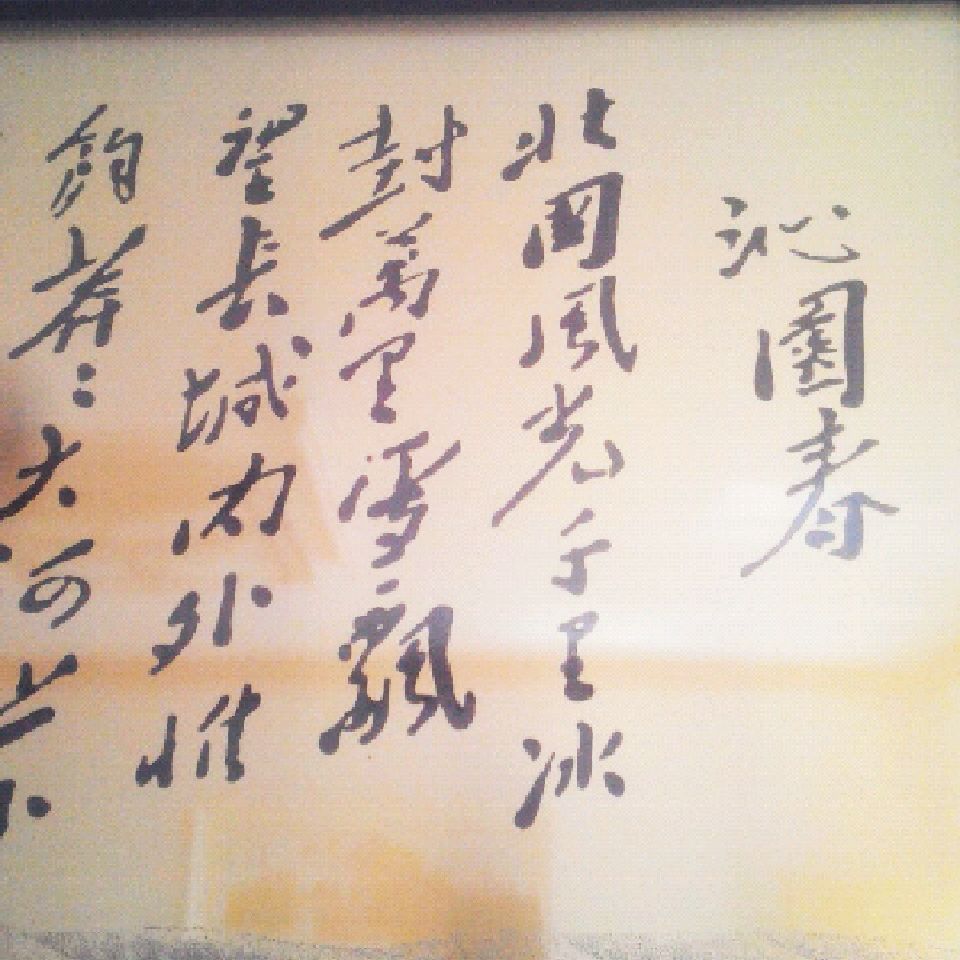 沁園春
北國風光千里冰
封萬里雪飄
望長城內外惟
餘莽〻大河上下